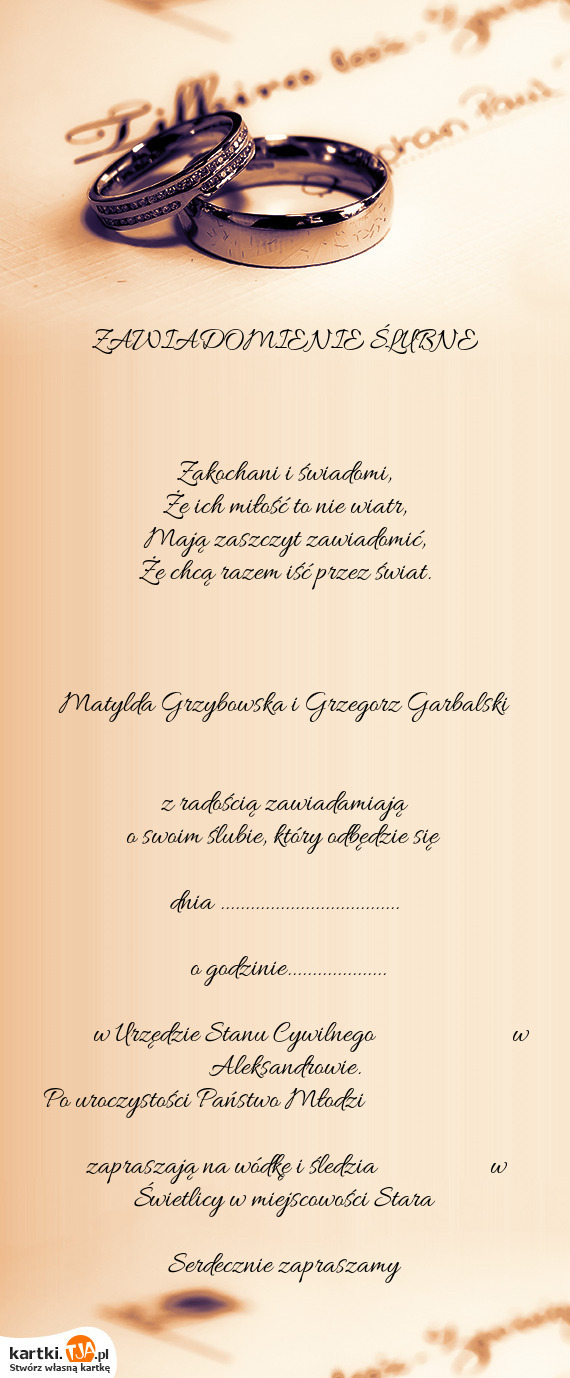 ZAWIADOMIENIE ŚLUBNE
Zakochani i świadomi,
Że ich miłość to nie wiatr,
Mają zaszczyt zawiadomić,
Że chcą razem iść przez świat.
Matylda Grzybowska i Grzegorz Garbalski
z radością zawiadamiają
o swoim ślubie, który odbędzie się
dnia ....................................
o godzinie....................
w Urzędzie Stanu Cywilnego w
Aleksandrowie.
Po uroczystości Państwo Młodzi
zapraszają na wódkę i śledzia w
Świetlicy w miejscowości Stara
Serdecznie zapraszamy
kartki.TJA.pl
Stwórz własną kartkę